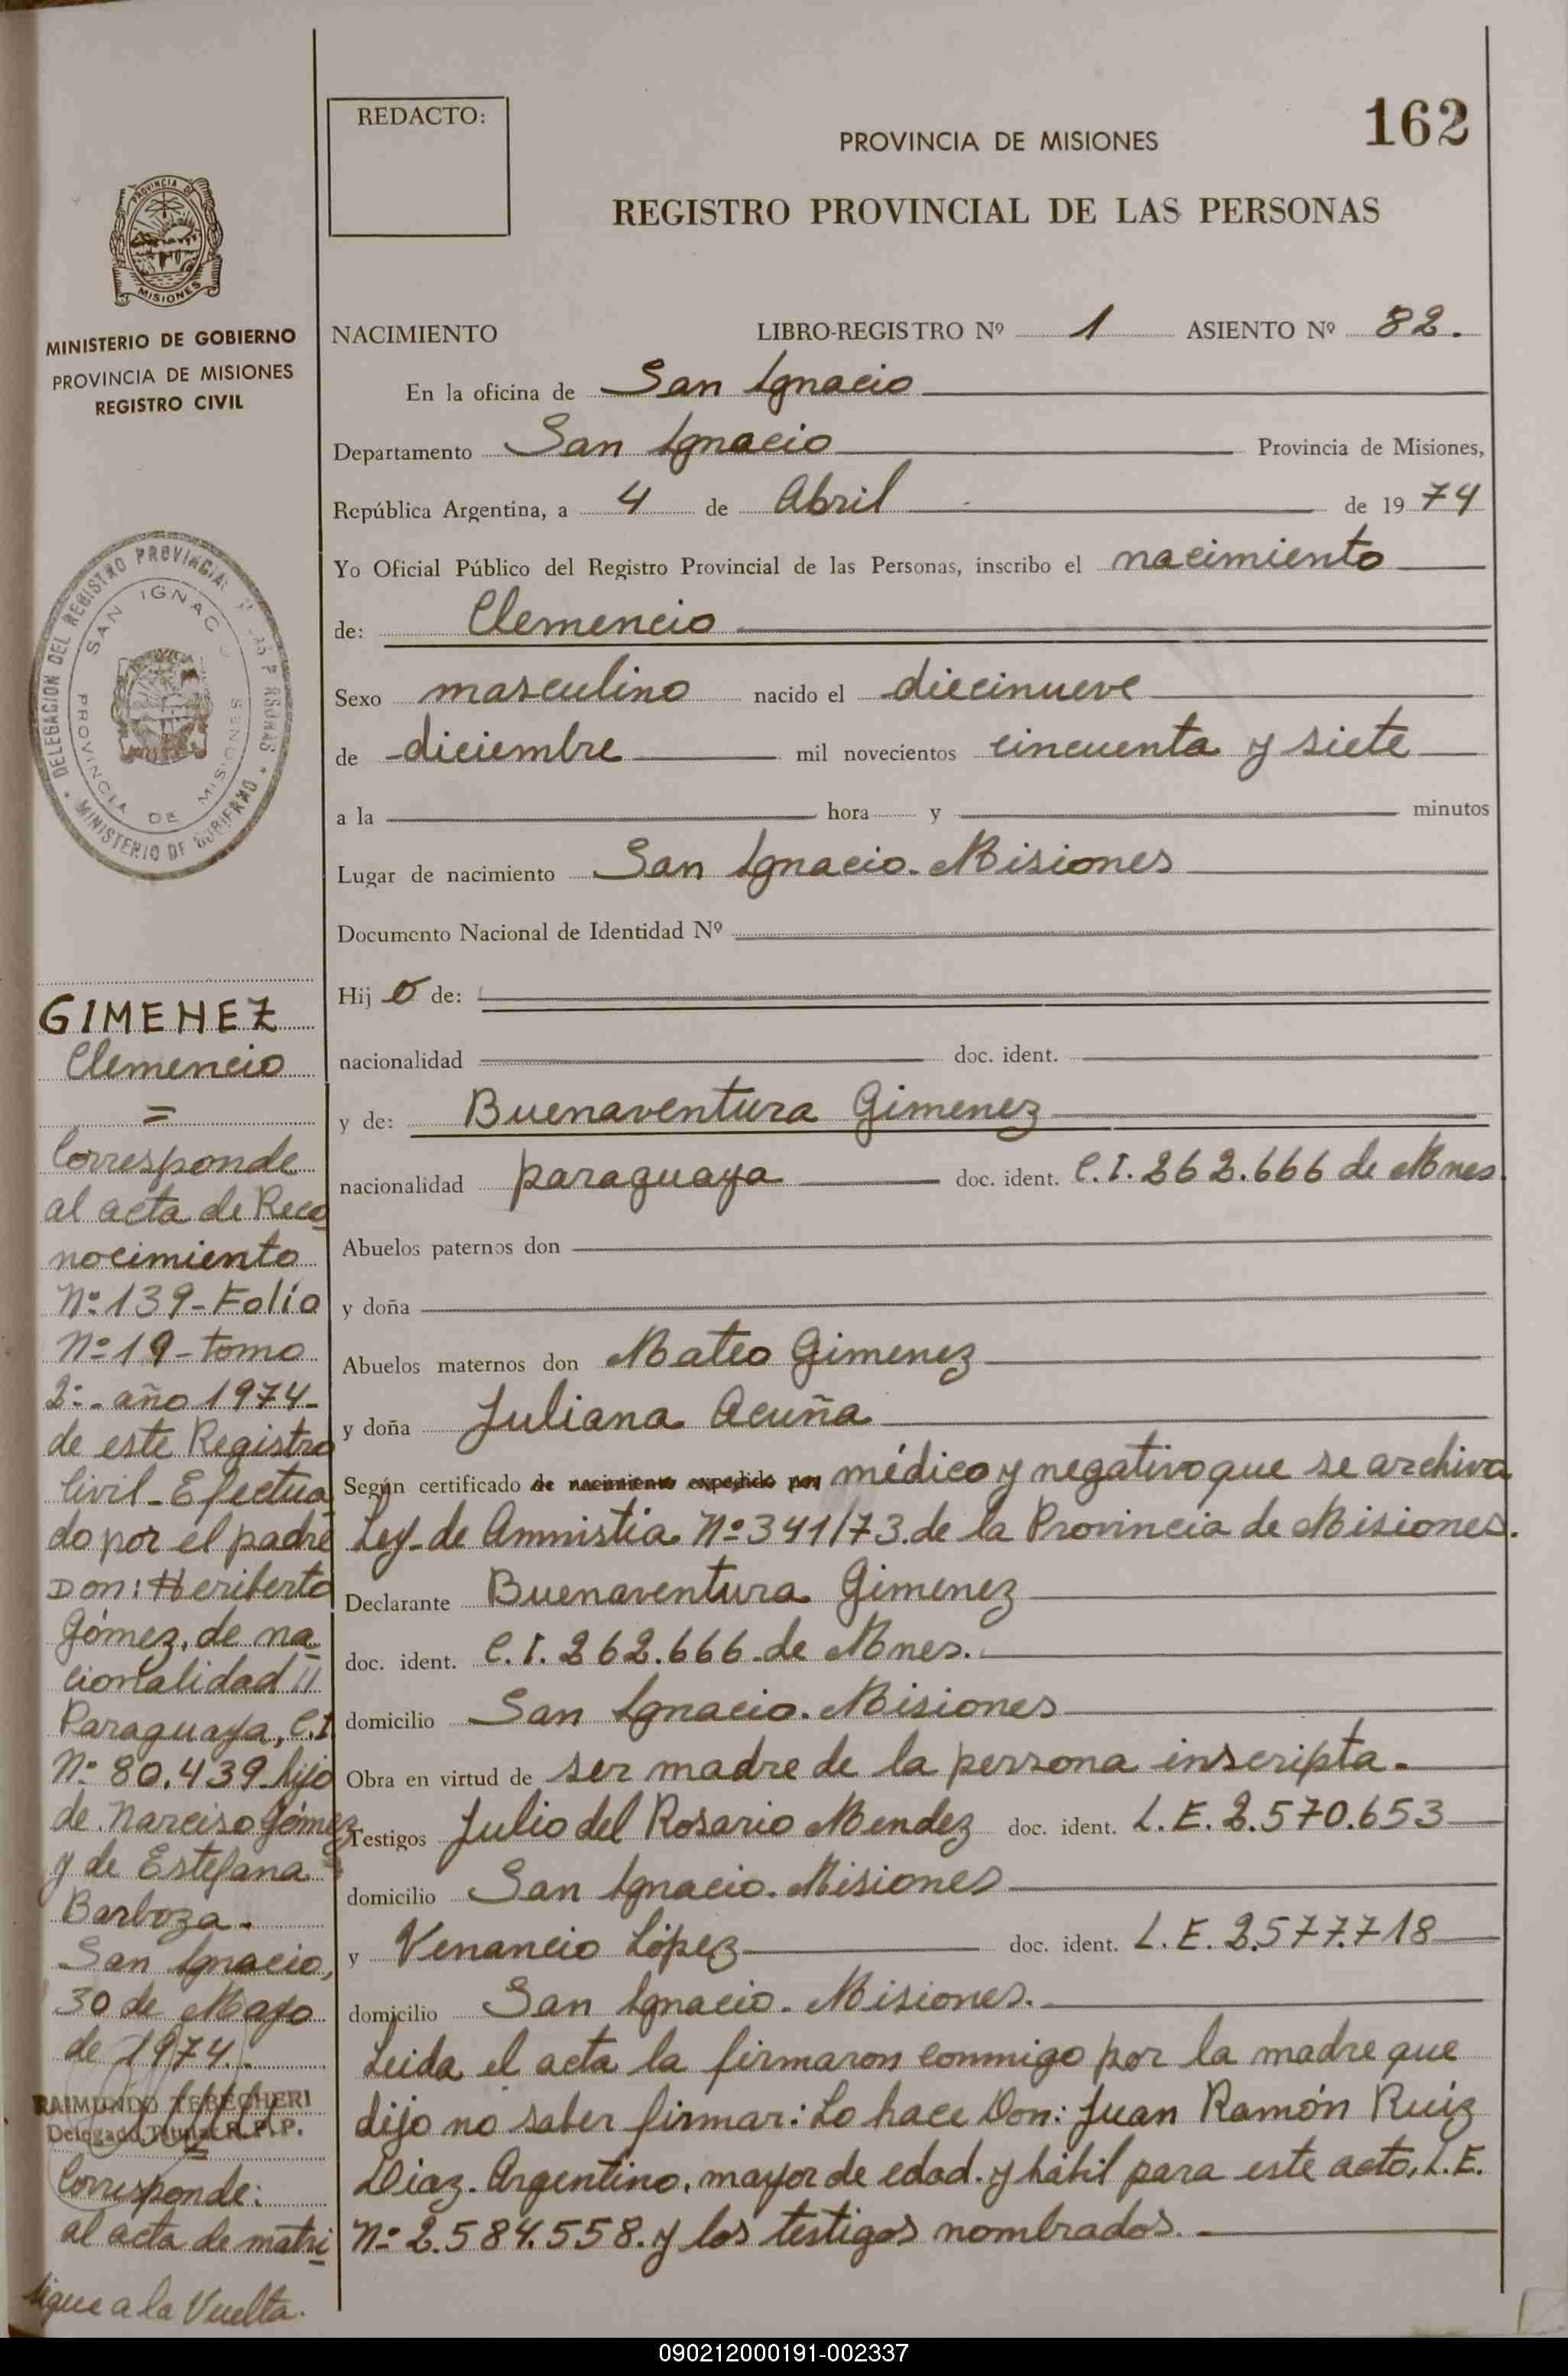 REDACTO:
PROVINCIA DE MISIONES
162
REGISTRO PROVINCIAL DE LAS PERSONAS
MISIONES
MINISTERIO DE GOBIERNO
PROVINCIA DE MISIONES
REGISTRO CIVIL
NACIMIENTO LIBRO-REGISTRO Nº 1 ASIENTO Nº 82.
En la oficina de San Ignacio
Departamento San Ignacio Provincia de Misiones,
República Argentina, a 4 de Abril de 1974
Yo Oficial Público del Registro Provincial de las Personas, inscribo el nacimiento
de: Clemencio
Sexo masculino nacido el diecinueve
de diciembre mil novecientos cincuenta y siete
a la hora y minutos
Lugar de nacimiento San Ignacio. Misiones
Documento Nacional de Identidad Nº
Hijo de:
nacionalidad doc. ident.
y de: Buenaventura Gimenez
nacionalidad paraguaya doc. ident. C.I. 262.666 de Mnes.
Abuelos paternos don
y doña
Abuelos maternos don Mateo Gimenez
y doña Juliana Acuña
Según certificado de nacimiento expedido por médico y negativo que se archiva
Ley de Amnistia Nº 341/73. de la Provincia de Misiones.
Declarante Buenaventura Gimenez
doc. ident. C.I. 262.666 de Mnes.
domicilio San Ignacio. Misiones
Obra en virtud de ser madre de la persona inscripta.
Testigos Julio del Rosario Mendez doc. ident. L.E. 2.570.653
domicilio San Ignacio. Misiones
y Venancio López doc. ident. L.E. 2.577.718
domicilio San Ignacio. Misiones.
Leida el acta la firmaron conmigo por la madre que
dijo no saber firmar: Lo hace Don: Juan Ramón Ruiz
Diaz. Argentino, mayor de edad. y hábil para este acto, L.E.
Nº 2.584.558. y los testigos nombrados.
DELEGACION DEL REGISTRO PROVINCIAL
SAN IGNACIO
PROVINCIA DE MISIONES
MINISTERIO DE GOBIERNO
GIMENEZ
Clemencio
=
Corresponde
al acta de Reco
nocimiento
Nº 139-Folio
Nº 19-tomo
2º. año 1974-
de este Registro
Civil-Efectua
do por el padre
Don: Heriberto
Gómez, de na
cionalidad //
Paraguaya, C.I
Nº 80.439 hijo
de Narciso Gómez
y de Estefana
Barboza.
San Ignacio,
30 de Mayo
de 1974.
RAIMUNDO TERECHERI
Delegado Titular R.P.P.
=
Corresponde:
al acta de matri
sigue a la Vuelta.
090212000191-002337